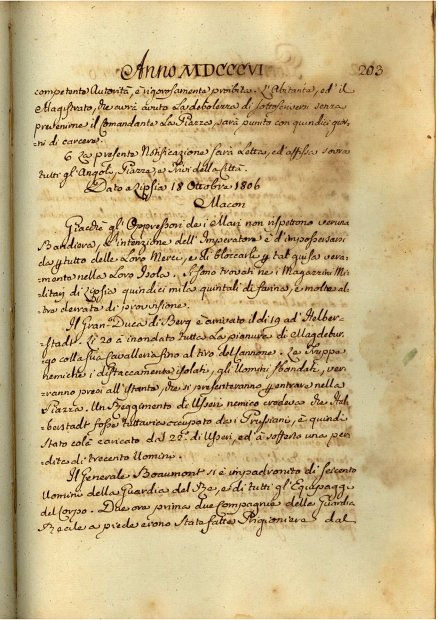 Anno MDCCCVI
203
competente Autorità, è rigorosamente proibita. L'Abitante, ed il
Magistrato, che avrà avuto la debolezza di sottoscriversi senza
prevenione il Comandante la Piazza, sarà punito con quindici gior-
ni di carcere.
6. La presente Notificazione sarà Letta, ed affissa sovra
tutti gl'Angoli, Piazze, e Trivi della Città.
Dato a Lipsia 18 Ottobre 1806
Macon
Giacchè gl'Oppressori dei Mari non rispettono veruna
Bandiera, è intenzione dell'Imperatore è d'impossessarsi
da per tutto delle Loro Merci, e di bloccarli per tal guisa vera-
mente nella Loro Isola. Si sono trovati ne i Magazzini Mi-
litari di Lipsia quindici mila quintali di farina, e molte al-
tre derrate di provvisione.
Il Gran-Duca di Berg è arrivato il di 19 ad Helber-
stadt. Li 20 à inondato tutta la pianura di Magdebur-
go colla sua Cavalleria fino al tiro del Cannone. Le Truppe
nemiche i distaccamenti isolati, gli Uomini sbandati, ver-
ranno presi all'istante, che si presenteranno per entrare nella
Piazza. Un Reggimento di Usseri nemico credeva che Hal-
berstadt fosse tuttavia occupato da i Prussiani, è quindi
stato colà caricato dal 2° di Usseri, ed à sofferto una per-
dita di trecento Uomini.
Il Generale Beaumont si è impadronito di seicento
Uomini della Guardia del Re, e di tutti gl'Equipaggi
del Corpo. Due ore prima due Compagnie della Guardia
Reale a piede erono State fatte Prigioniere dal